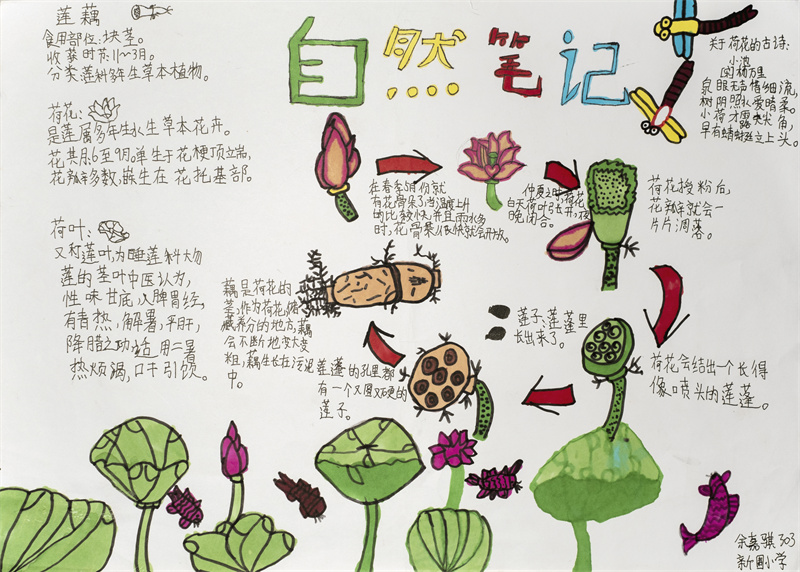 自然笔记
莲藕
食用部位:块茎。
收获时节:11~3月。
分类莲科多年生草本植物。
荷花:
是莲属多年生水生草本花卉。
花共月6至9月。单生于花梗顶立端,
花瓣多数,嵌生在花托基部。
荷叶:
又称莲叶,为睡莲科大勿
莲的茎叶中医认为,
性味甘底,心脾胃经,
有青热,解暑,平肝,
降脂之功适用二暑
热烦渴,口干引
关于荷花的古诗:
小池
杨万里
泉眼无声惜细流,
树阴照水爱晴柔。
小荷才露尖尖角,
早有蜻蜓立上头。
在春季5月份就
有花骨朵了,当温度上升
的比较快,并且雨水多
时,花骨朵从很快就会开放。
仲夏之时,荷花
白天荷叶张开,夜
晚闭合。
荷花授粉后,
花瓣就会一
片片凋落。
荷花会结出一个长得
像喷头的莲蓬。
莲子、莲蓬里
长出来了。
莲蓬的孔里都
有一个又圆又硬的
莲子。
藕是荷花的
茎,作为荷花储
藏养分的地方,藕
会不断地变大变
粗,藕生长在污泥
中。
余嘉骐303
新围小学